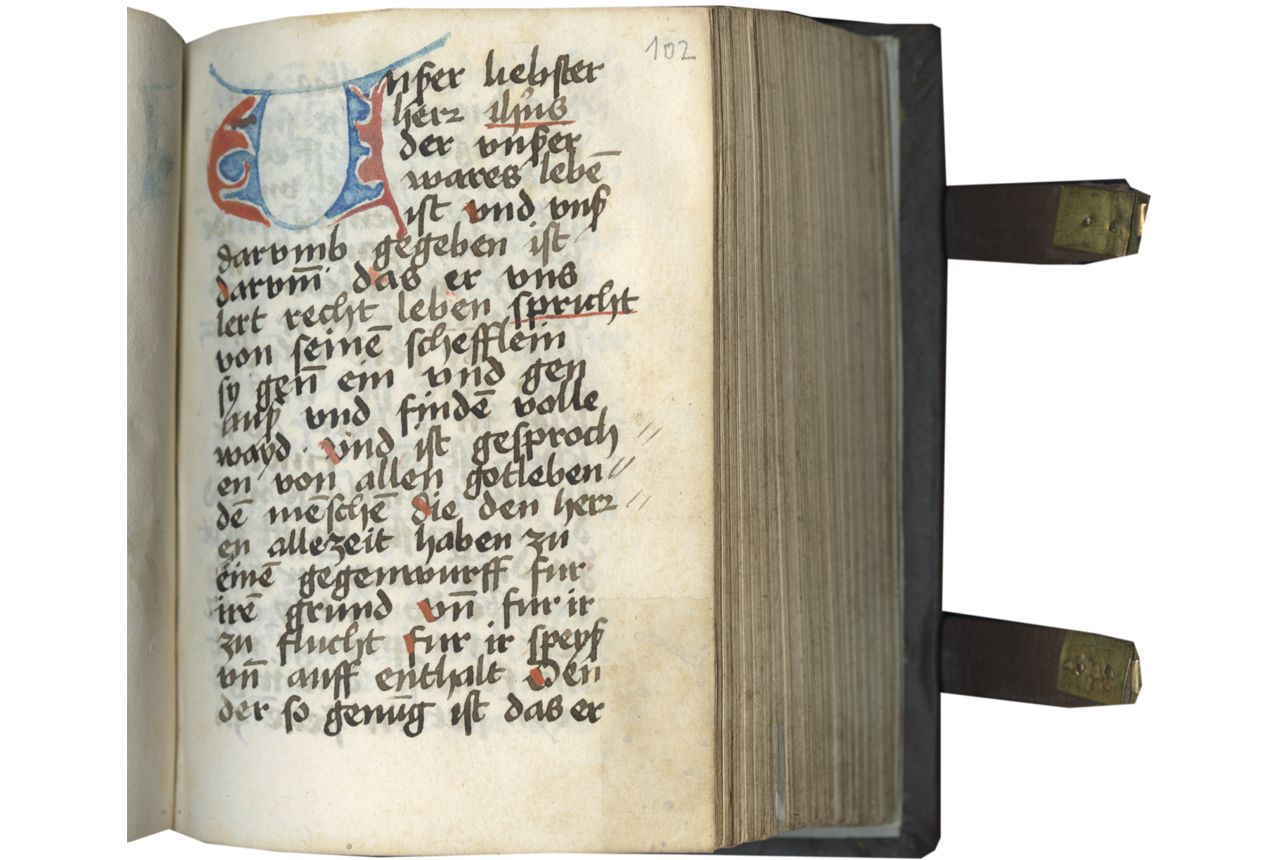 102
Vnßer liebster
herz ihus
der vnßer
wares lebē
ist vnd vnß
darvmb gegeben ist
darvm̄ das er vns
lert recht leben spricht
von seinē schefflein
sy gen̄ ein vnd gen
auß vnd findē volle
wayd · vnd ist gesproch //
en von allen gotleben //
dē mēschē die den herz //
en allezeit haben zu
einē gegenwurff fur
irē grund vn̄ fur ir
zu flucht fur ir speyß
vn̄ auff enthalt Den
der so genūg ist das er